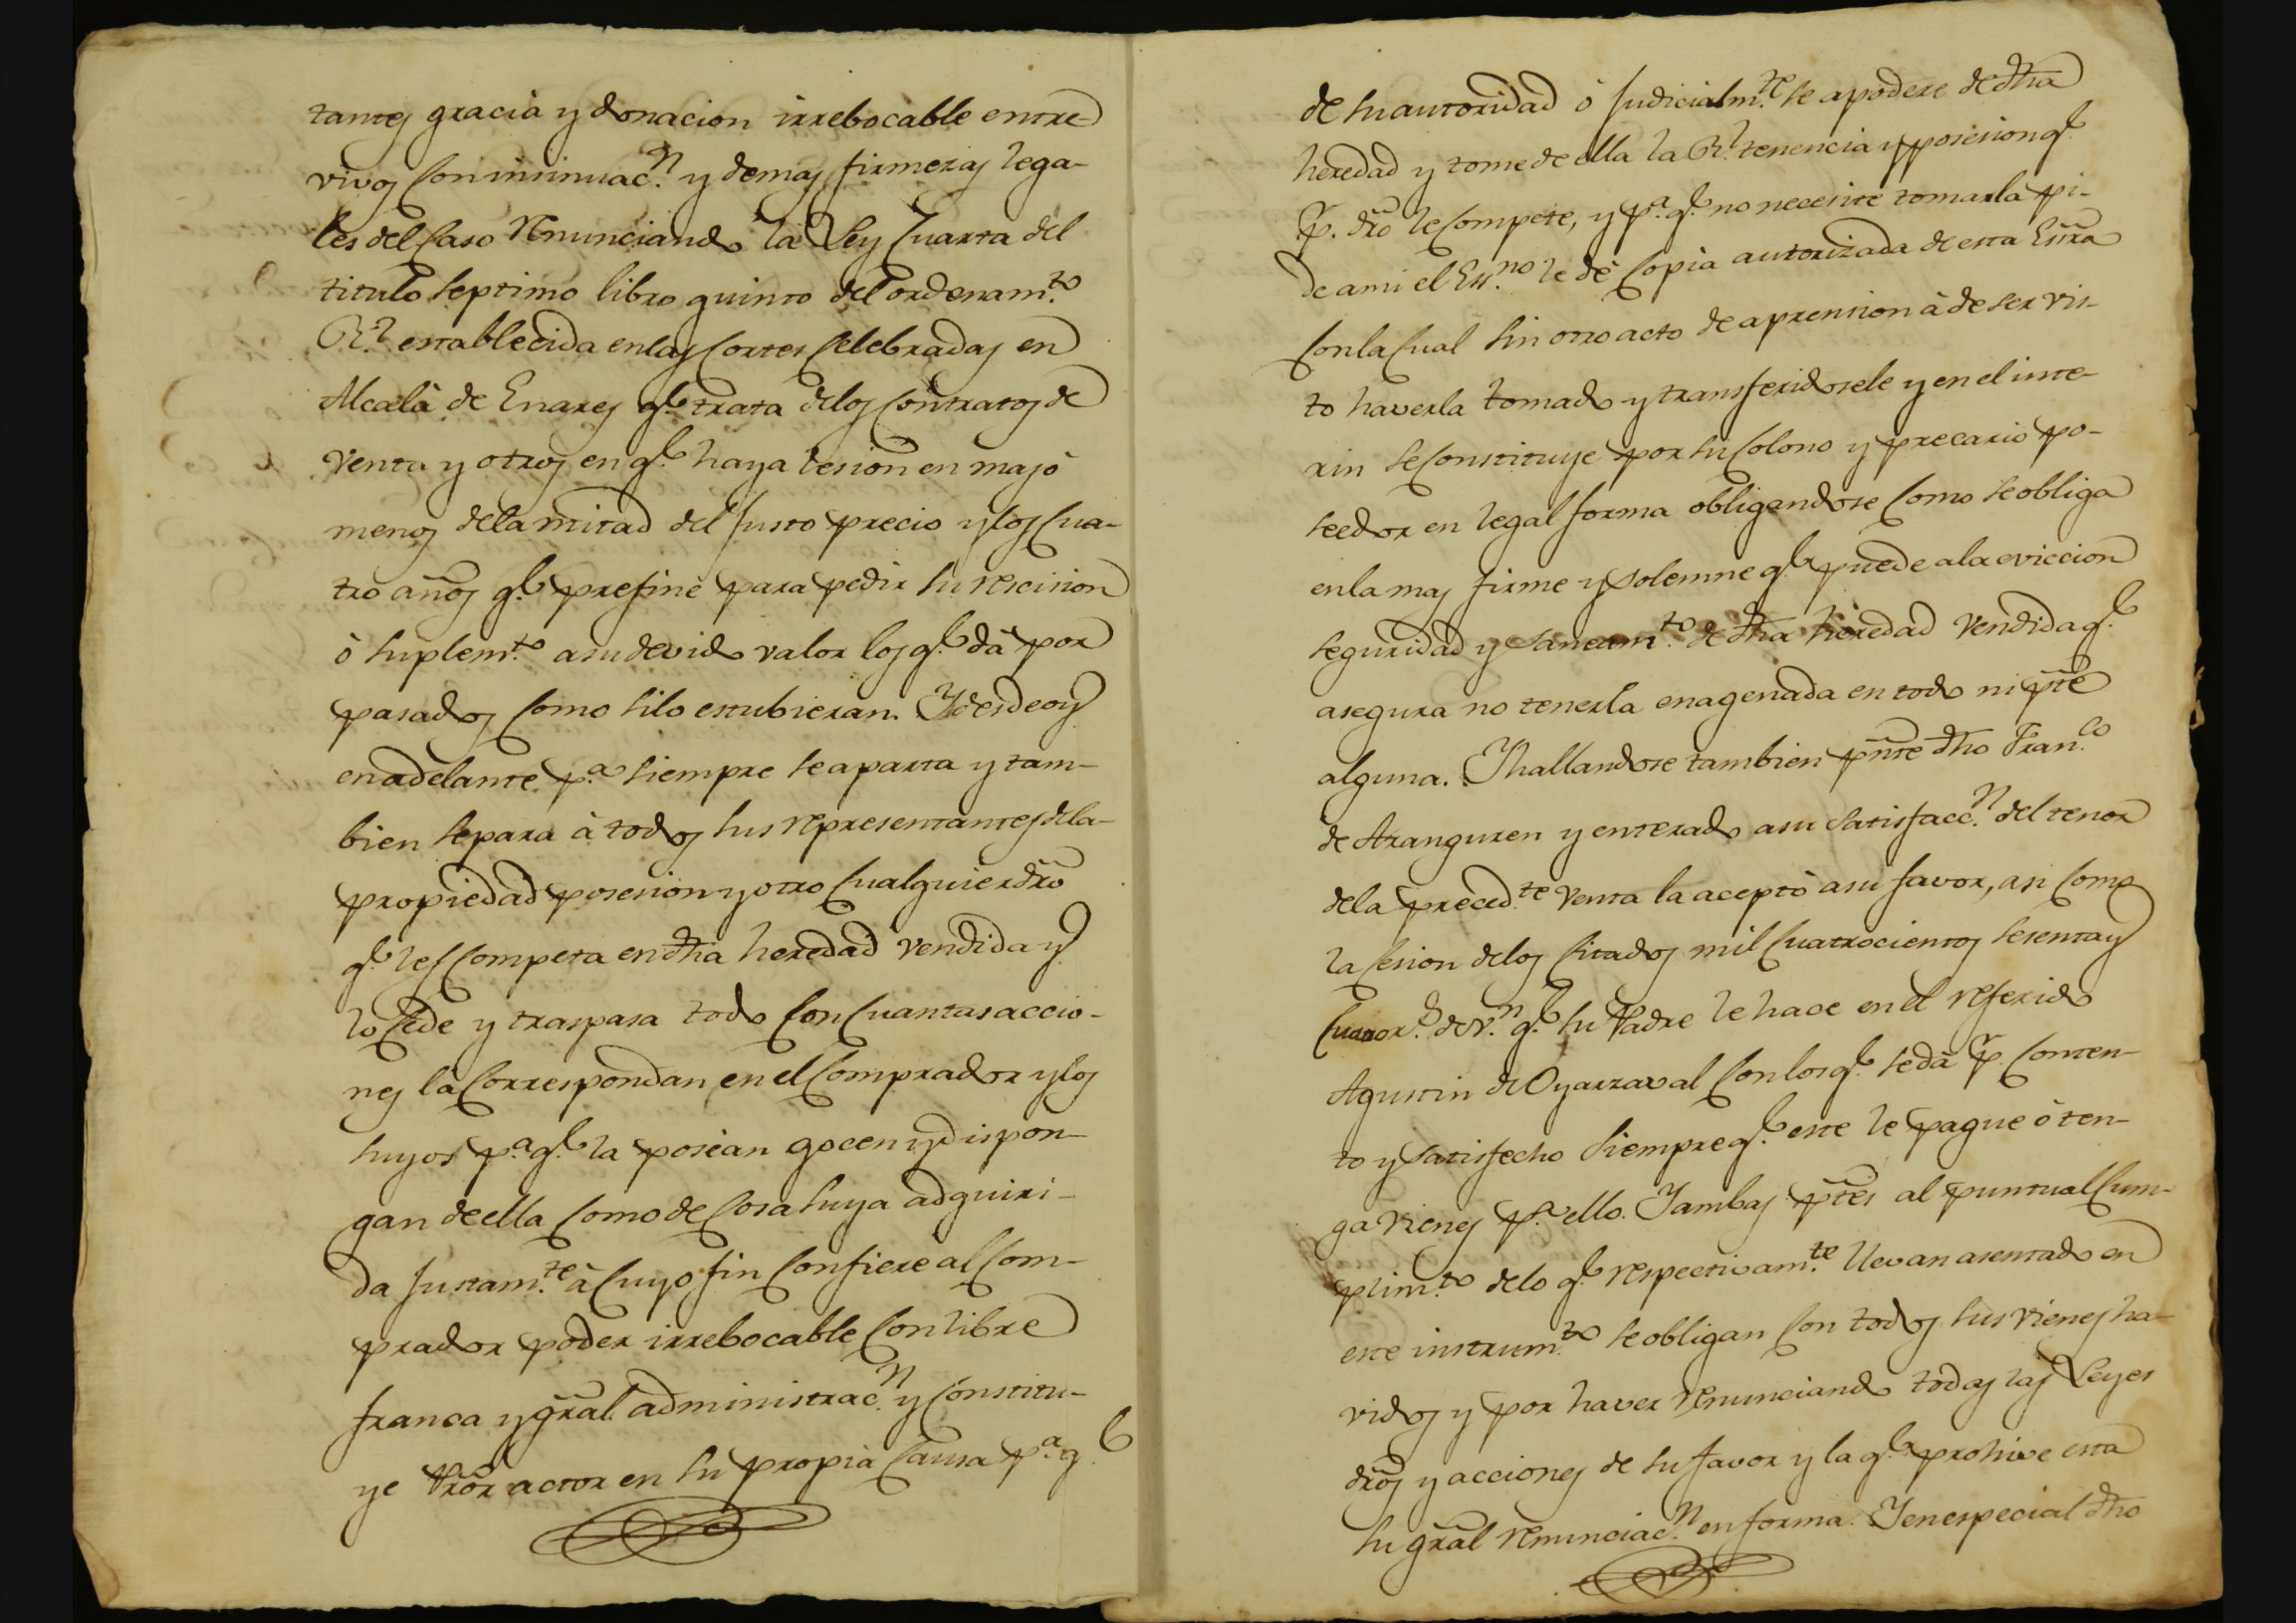 tantes gracia y donacion irrebocable entre
vivos con insinuac.n y demas firmezas lega-
les del caso renunciando la Ley cuarta del
titulo septimo libro quinto del ordenam.to
R.l establecida en las Cortes celebradas en
Alcalà de Enares q.e trata de los contratos de
venta y otros en q.e haya lesion en mas ò
menos de la mitad del justo precio y los cua-
tro años q.e prefine para pedir su rescision
ò suplem.to a su devido valor los q.e dà por
pasados como si lo estubieran. Y desde oy
en adelante p.a siempre se aparta y tam-
bien separa à todos sus representantes de la
propiedad posesion y otro cualquier dro
q.e les competa en dha heredad vendida y
lo cede y traspasa todo con cuantas accio-
nes la correspondan en el comprador y los
suyos p.a q.e la posean gocen y dispon-
gan de ella como de cosa suya adquiri-
da justam.te à cuyo fin confiere al com-
prador poder irrebocable con libre
franca y gral administrac.n y constitu-
ye Pror actor en su propia causa p.a q.e
de su autoridad ò judicialm.te se apodere de dha
heredad y tome de ella la R.l tenencia y posesion q.e
p. dro le compete, y p.a q.e no necesite tomarla pi-
de a mi el Ess.no le dè copia autorizada de esta Essra
con la cual sin otro acto de aprension à de ser vis-
to haverla tomado y transferidosele y en el inte-
rin se constituye por su colono y precario po-
seedor en legal forma obligandose como se obliga
en la mas firme y solemne q.e puede a la eviccion
seguridad y saneam.to de dha heredad vendida q.e
asegura no tenerla enagenada en todo ni pte
alguna. Y hallandose tambien pnte dho Fran.co
de Aranguren y enterado a su satisfacc.n del tenor
de la preced.te venta la aceptò a su favor, asi como
la cesion de los citados mil cuatrocientos sesenta y
cuatro r.s de v.n q.e su Padre le hace en el referido
Agustin de Oyarzaval con los q.e se dà p. conten-
to y satisfecho siempre q.e este le pague ò ten-
ga vienes p.a ello. Y ambas ptes al puntual cum-
plim.to de lo q.e respectivam.te llevan asentado en
este instrum.to se obligan con todos sus vienes ha-
vidos y por haver renunciando todas las Leyes
dros y acciones de su favor y la q.e prohive esta
su gral renunciac.n en forma. Y en especial dho